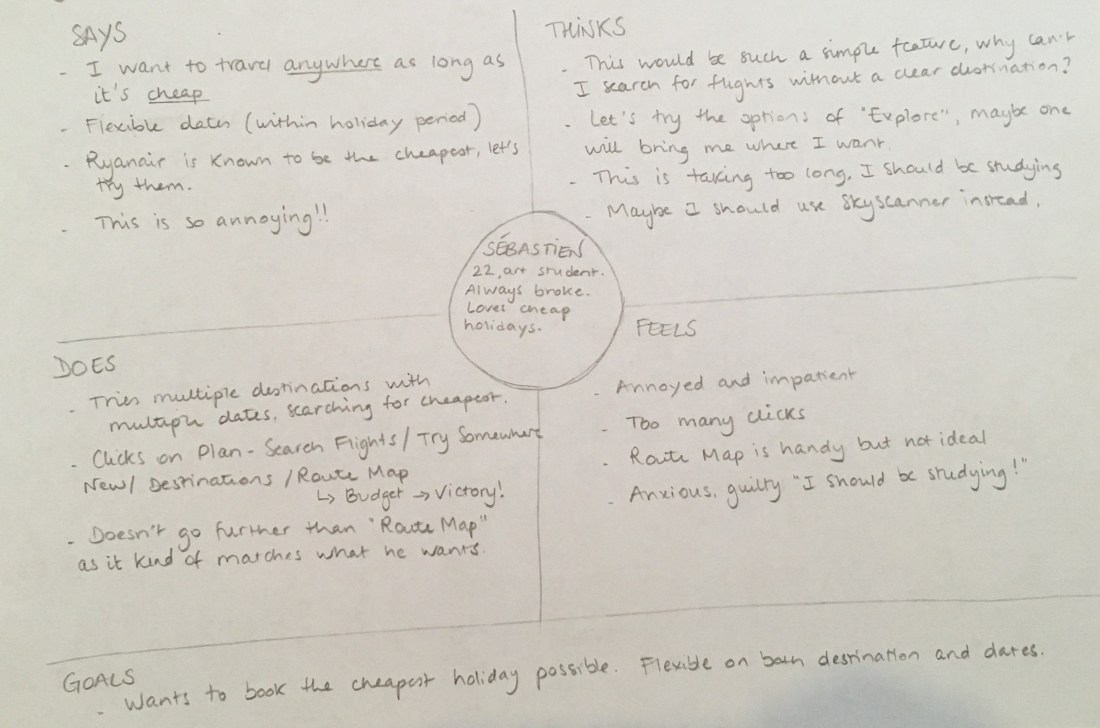 SAYS
- I want to travel anywhere as long as
it's cheap
- Flexible dates (within holiday period)
- Ryanair is known to be the cheapest, let's
try them.
- This is so annoying!!
THINKS
- This would be such a simple feature, why can't
I search for flights without a clear destination?
- Let's try the options of "Explore", maybe one
will bring me where I want.
- This is taking too long, I should be studying
- Maybe I should use Skyscanner instead.
SÉBASTIEN
22, art student.
Always broke.
Loves cheap
holidays.
DOES
- Tries multiple destinations with
multiple dates, searching for cheapest.
- Clicks on Plan - Search Flights / Try Somewhere
New / Destinations / Route Map
↳ Budget → Victory!
- Doesn't go further than "Route Map"
as it kind of matches what he wants.
FEELS
- Annoyed and impatient
- Too many clicks
- Route Map is handy but not ideal
- Anxious, guilty "I should be studying!"
GOALS
- Wants to book the cheapest holiday possible. Flexible on both destination and dates.